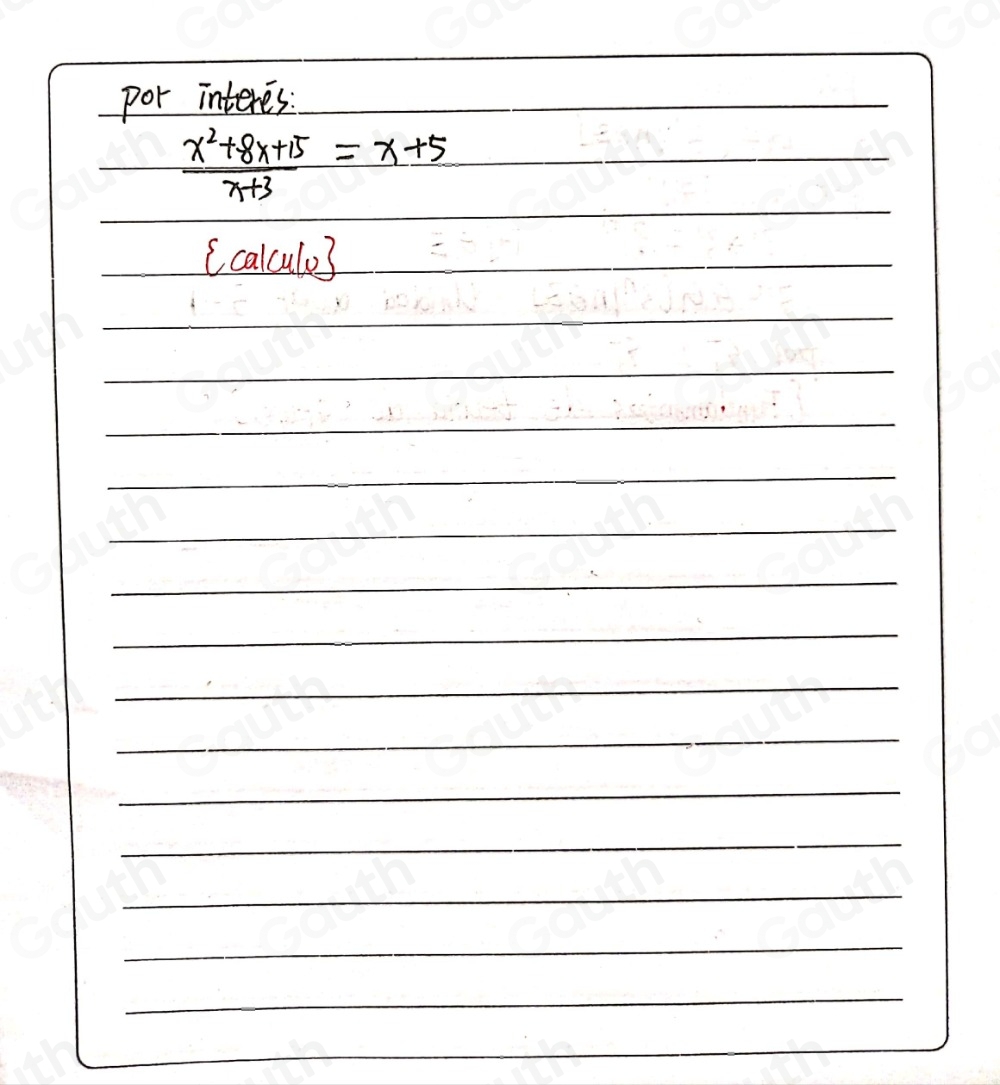 por interés:
x²+8x+15 / x+3 = x+5
{calculo}